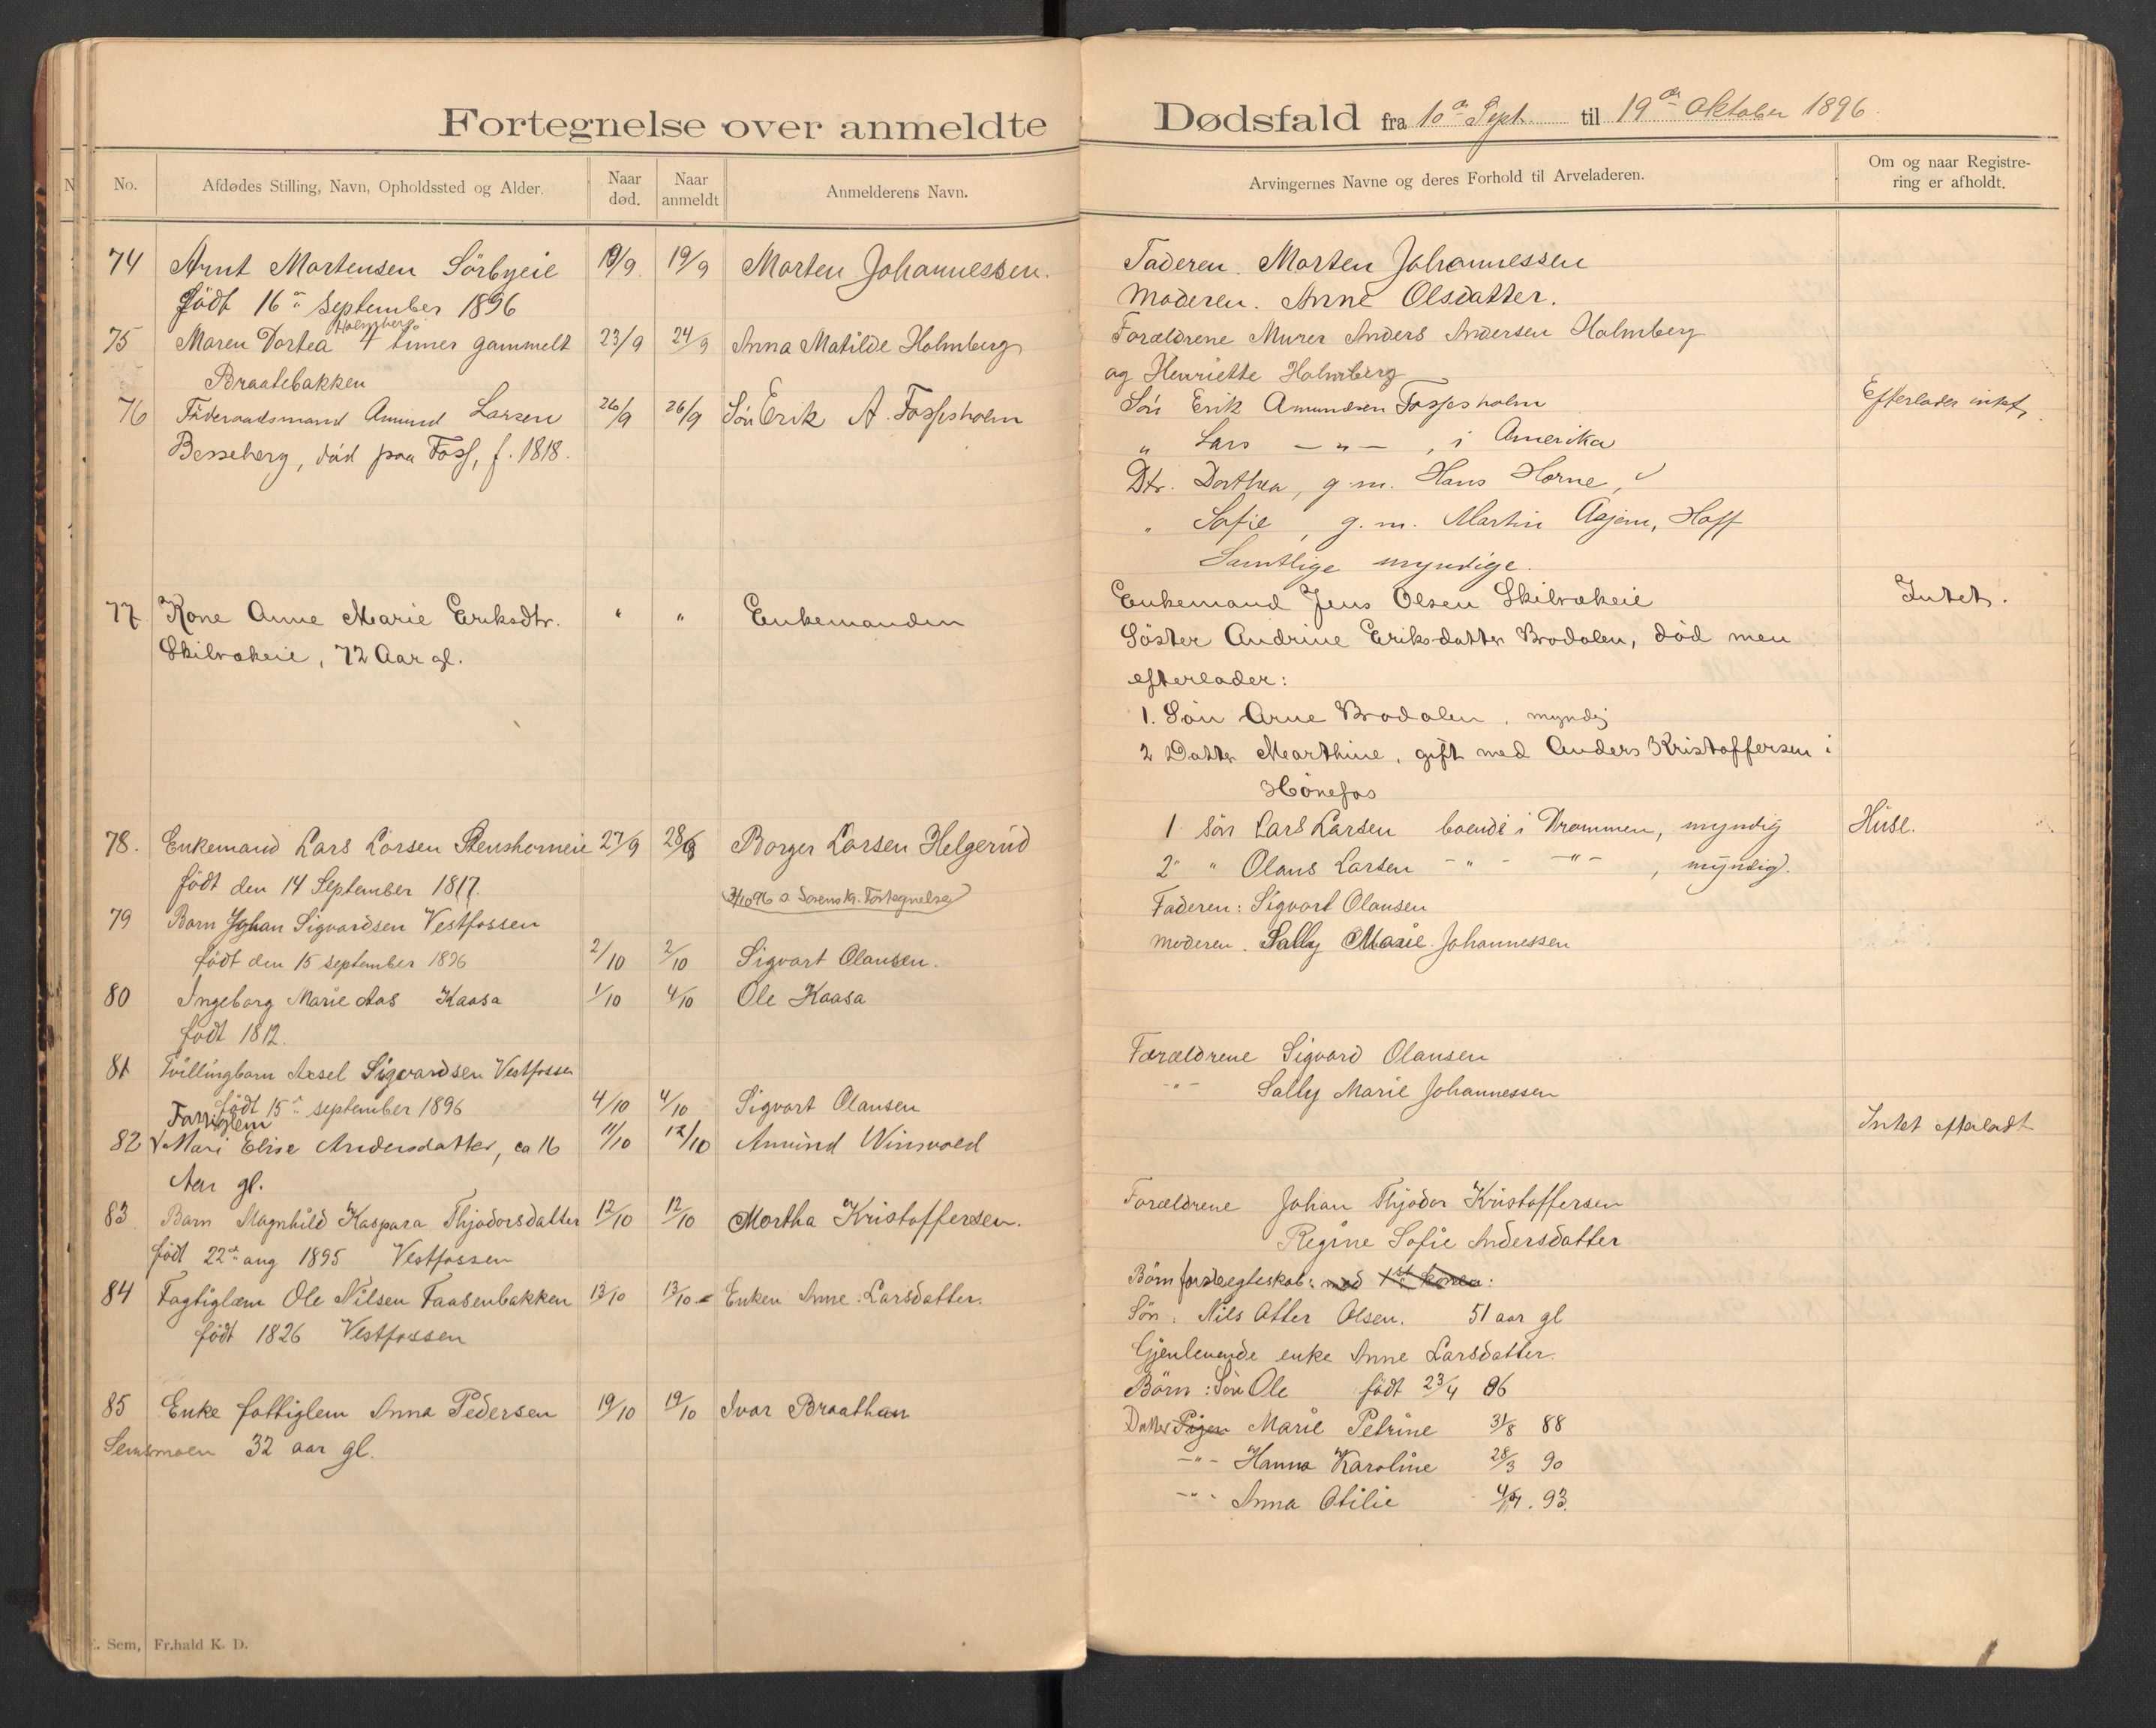 Fortegnelse over anmeldte Dødsfald fra 10de Sept. til 19de Oktober 1896.
N No. Afdødes Stilling, Navn, Opholdssted og Alder. Naar død. Naar anmeldt Anmelderens Navn.
Arvingernes Navne og deres Forhold til Arveladeren. Om og naar Registrering er afholdt.
74 Arnt Mortensen Sörbyeie 19/9 19/9 Morten Johannessen.
födt 16de September 1896
75 Maren Dortea Holmberg 4 timer gammelt 23/9 24/9 Anna Matilde Holmberg
Braatebakken
76 Föderaadsmand Amund Larsen 26/9 26/9 Sön Erik A. Fossesholm
Besseberg, död paa Foss, f. 1818.
77 Kone Anne Marie Eriksdtr. " " Enkemanden
Skilvokeie, 72 Aar gl.
78. Enkemand Lars Larsen Stenshorneie 27/9 28/9 Borger Larsen Helgerud
födt den 14 September 1817.
3/10 96 s. Sorenskr. Fortegnelse
79 Barn Johan Sigvardsen Vestfossen
födt den 15 september 1896 2/10 2/10 Sigvart Olausen.
80 Ingeborg Marie Aas Kaasa 1/10 4/10 Ole Kaasa
födt 1812.
81 Tvillingbarn Axsel Sigvardsen Vestfossen
födt 15de september 1896 4/10 4/10 Sigvart Olausen
Fattiglem
82 Mari Elise Andersdatter, ca 16 11/10 12/10 Amund Winsvold
Aar gl.
83 Barn Magnhild Kaspara Thjodorsdatter 12/10 12/10 Martha Kristoffersen.
födt 22de aug 1895 Vestfossen
84 Fagtiglæm Ole Nilsen Faasenbakken 13/10 13/10 Enken Anne Larsdatter.
födt 1826 Vestfossen
85 Enke fattiglem Anna Pedersen 19/10 19/10 Ivar Braathan
Semsmoen 32 aar gl.
E. Sem, Fr.hald K. D.
Faderen. Morten Johannessen
Moderen. Anne Olsdatter.
Forældrene Murer Anders Andersen Holmberg
og Henriette Holmberg
Sön Erik Amundsen Fossesholm Efterlader intet
" Lars — " — , i Amerika
Dtr. Dorthea, g. m. Hans Horne,
" Sofie, g. m. Martin Aasjem, Hoff
Samtlige myndige.
Enkemand Jens Olsen Skilvokeie Intet.
Söster Andrine Eriksdatter Brodalen, död men
efterlader:
1. Sön Arne Brodalen, myndig
2 Datter Marthine, gift med Anders Kristoffersen i
Hönefos
1 sön Lars Larsen boende i Drammen, myndig Huse.
2" " Olaus Larsen - " - - " - , myndig.
Faderen: Sigvart Olausen
Moderen. Sally Marie Johannessen
Forældrene Sigvard Olausen
- " - Sally Marie Johannessen
Intet efterladt
Forældrene Johan Thjodor Kristoffersen
Regine Sofie Andersdatter
Börn før ægteskab: med 1ste konen:
Sön. Nils Otter Olsen. 51 aar gl
Gjenlevende enke Anne Larsdatter.
Börn: Sön Ole födt 23/4 86
Datter Pigen Marie Petrine 31/8 88
- " - Hanna Karoline 28/3 90
- " - Anna Otilie 4/7. 93.